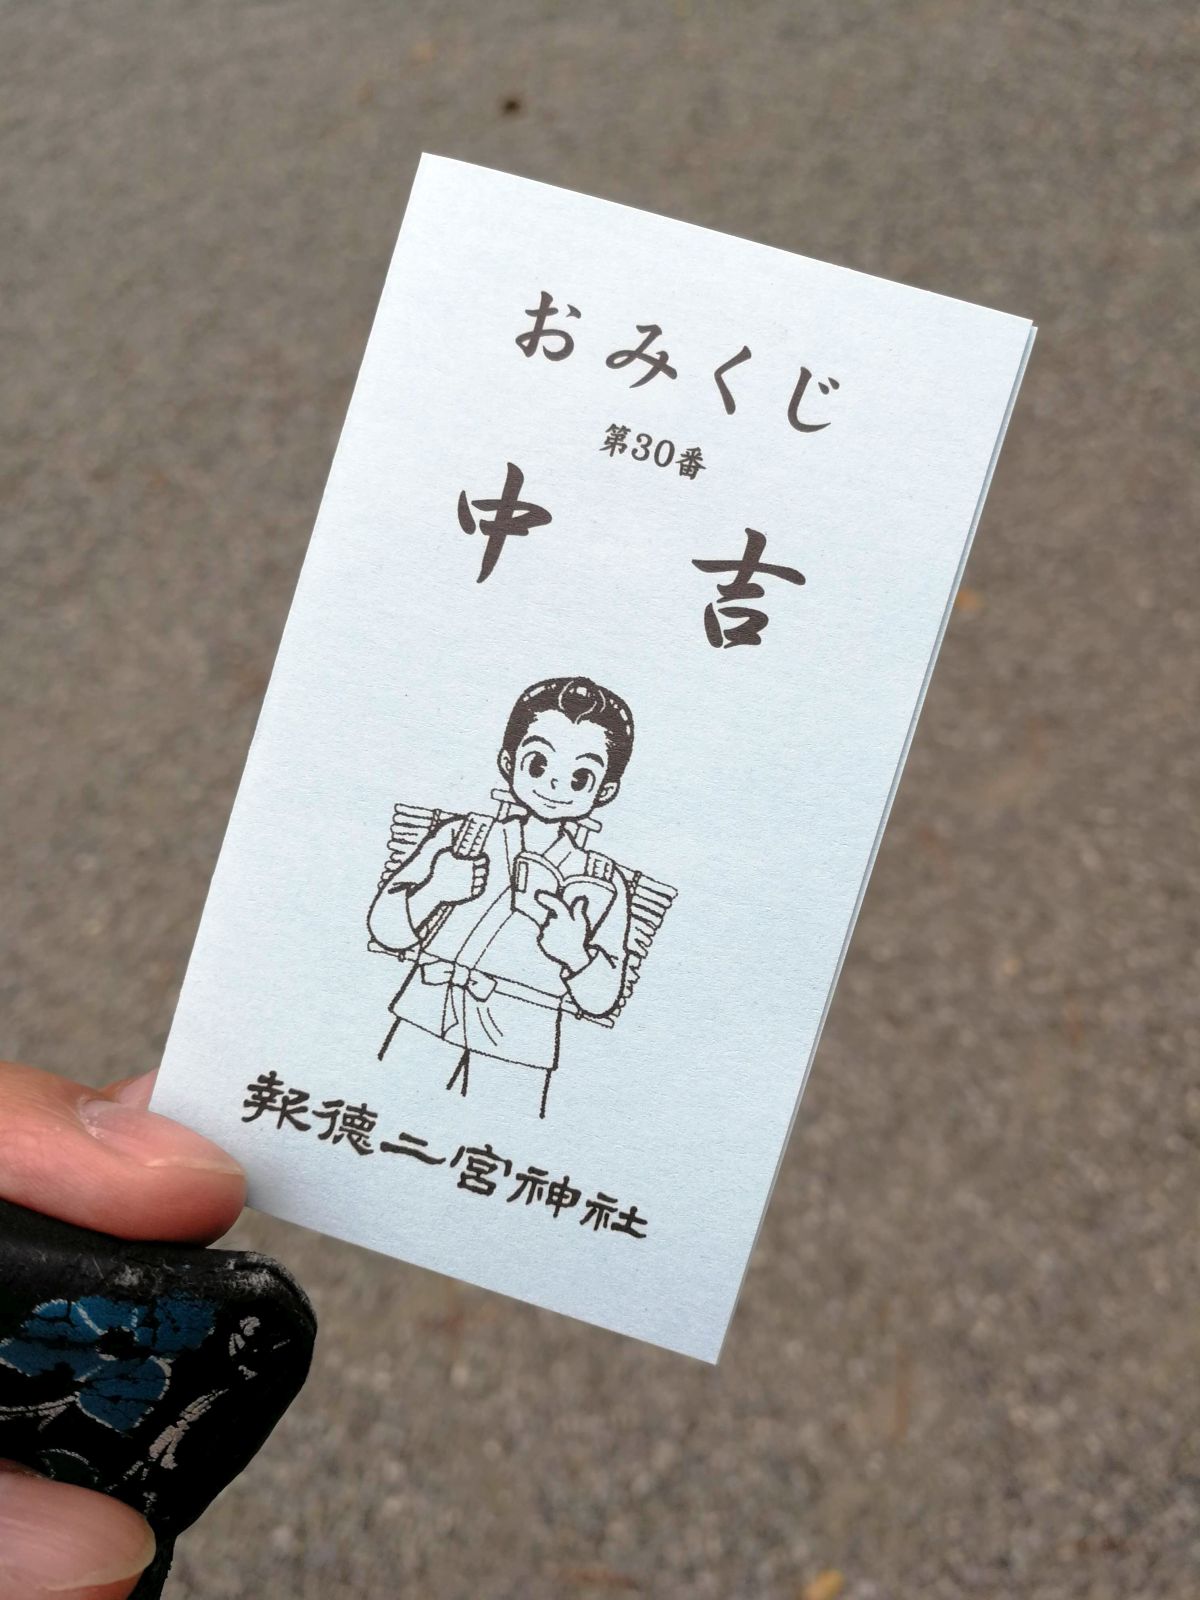 おみくじ
第30番
中吉
報徳二宮神社